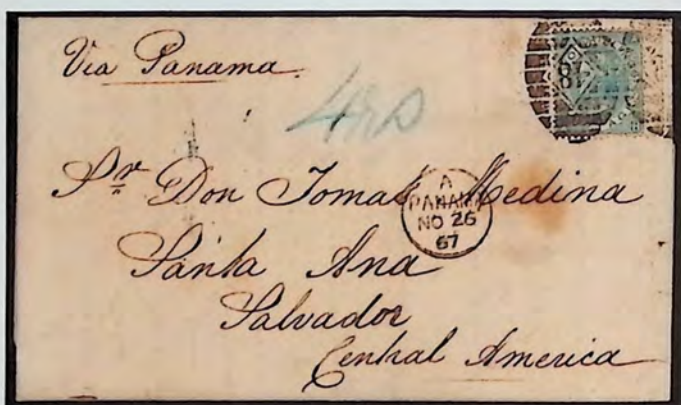 Via Panama.
Sr Don Tomas Medina
A
PANAMA
NO 26
67
Santa Ana
Salvador
Central America